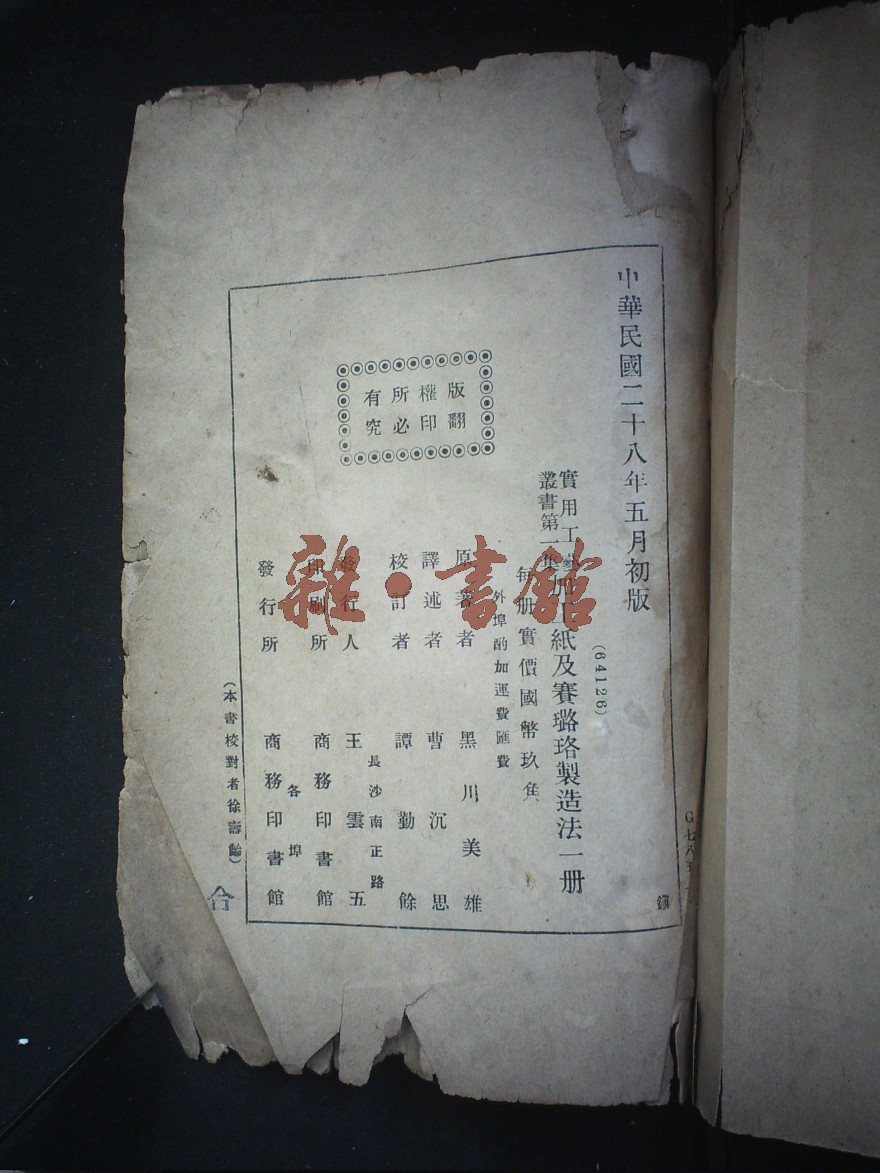 中華民國二十八年五月初版
(64126)
實用工藝
叢書第一集
加工紙及賽璐珞製造法一册
每册實價國幣玖角
外埠酌加運費匯費
原著者 黑川美雄
譯述者 曹沉思
校訂者 譚勤餘
長沙南正路
發行人 王雲五
印刷所 商務印書館
各埠
發行所 商務印書館
版權所有
翻印必究
(本書校對者徐壽齡)
合
雜·書館